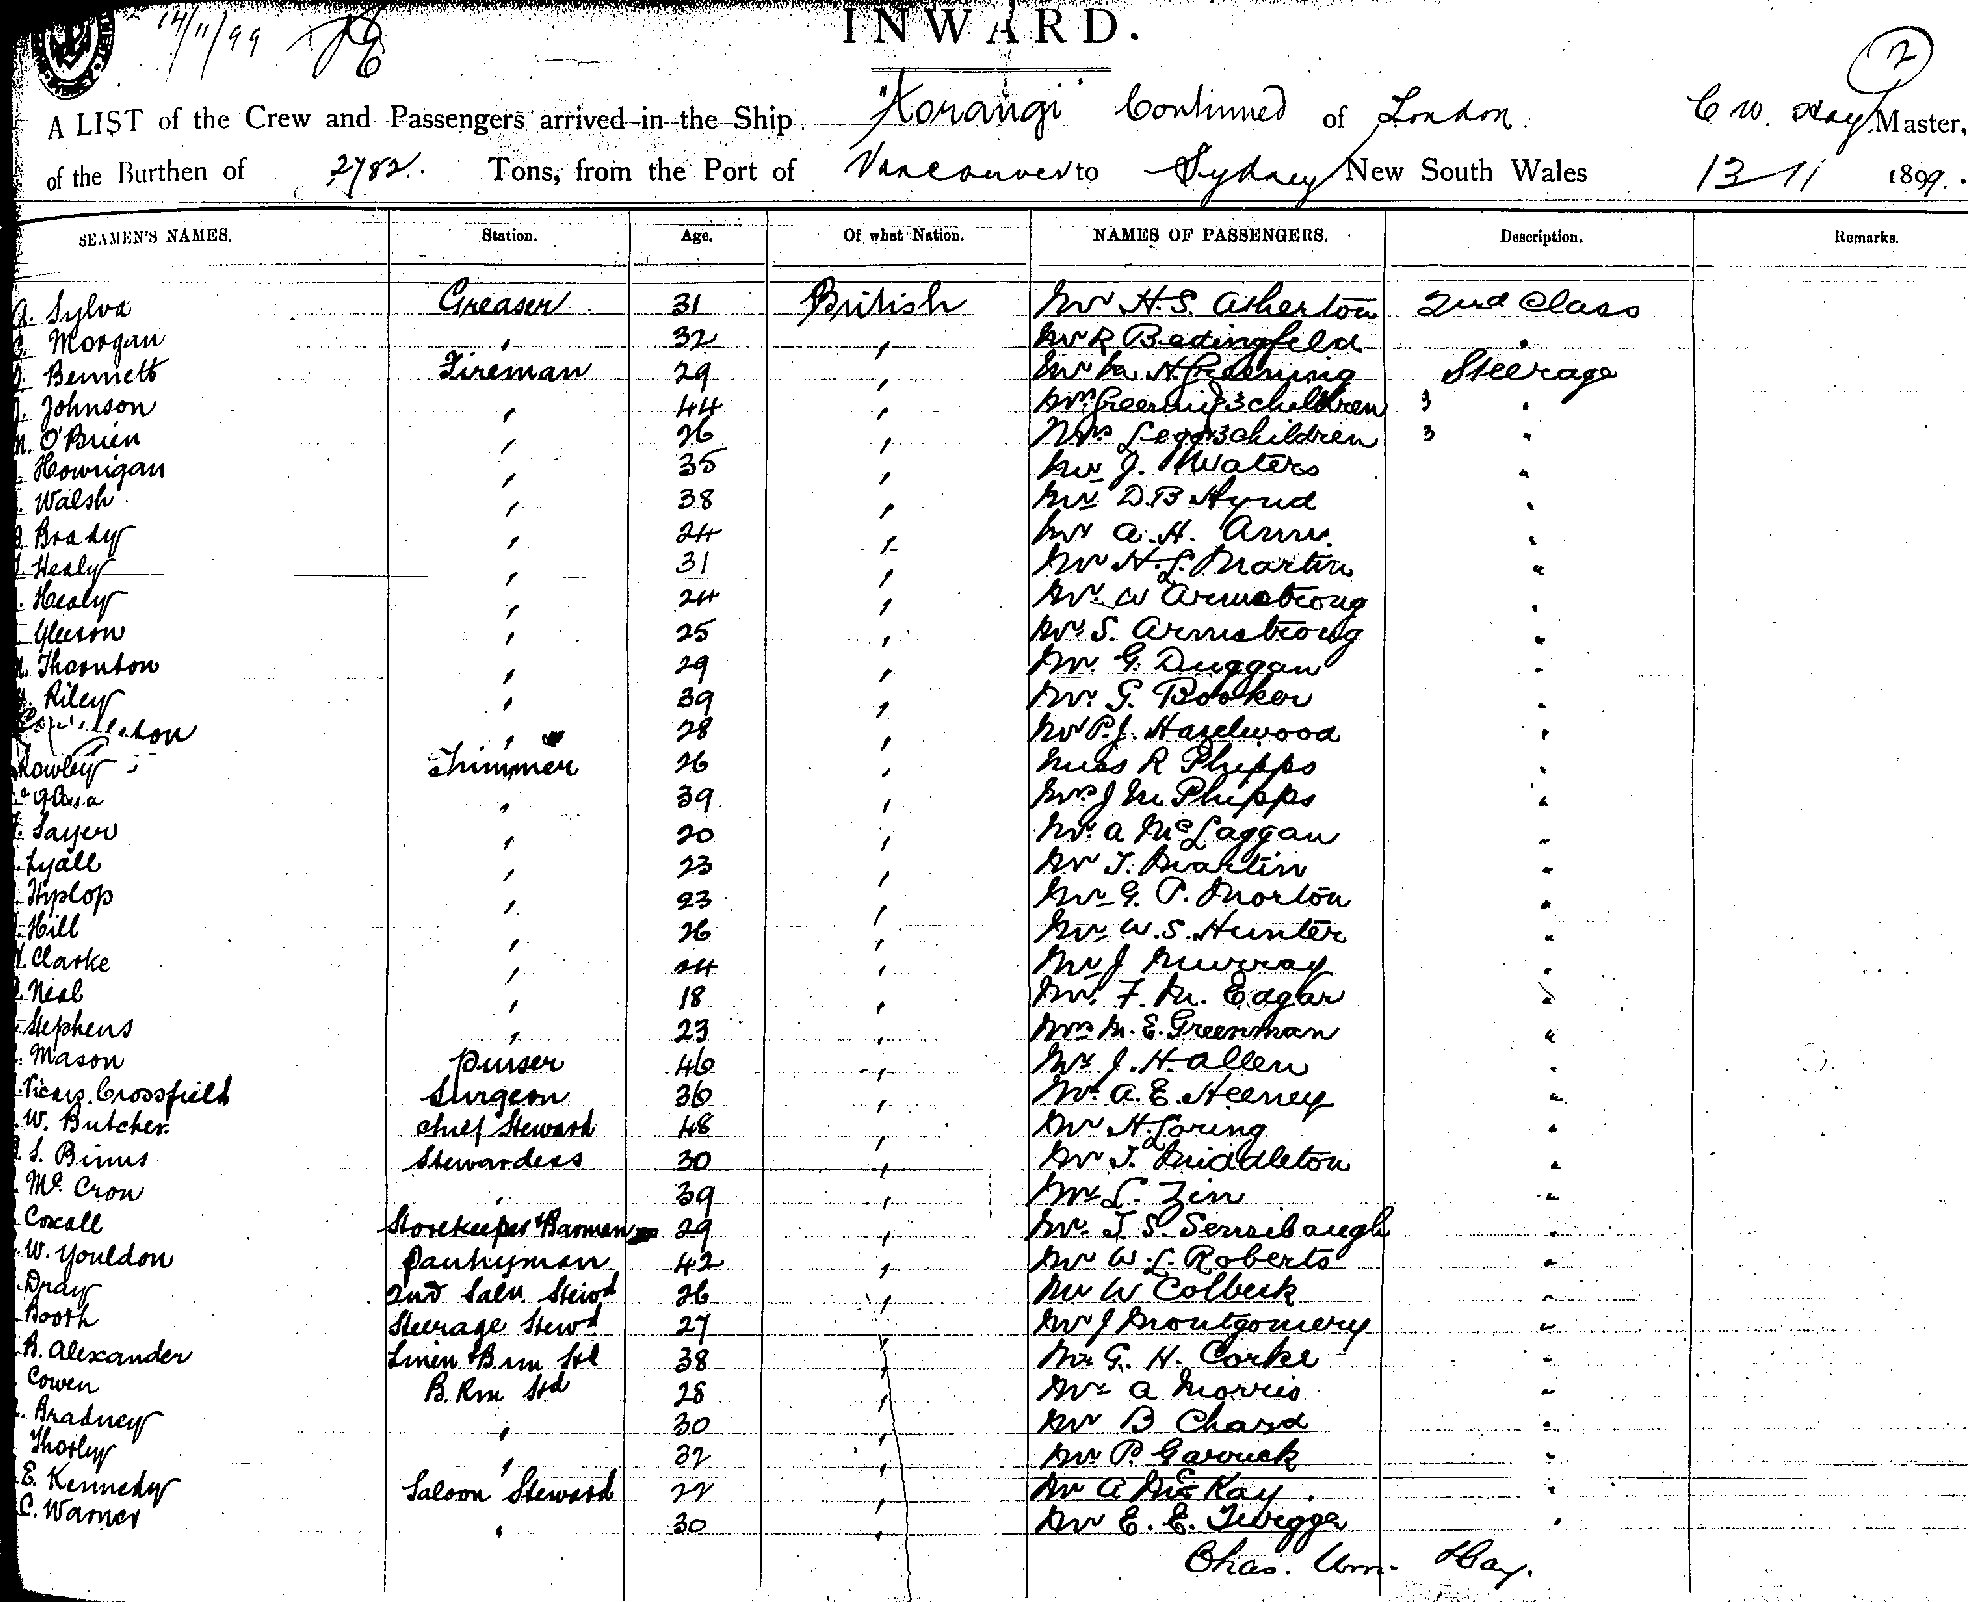 14/11/99
INWARD.
2
A LIST of the Crew and Passengers arrived in the Ship "Aorangi" Continued of London. C W. Hay Master,
of the Burthen of 2782. Tons, from the Port of Vancouver to Sydney New South Wales 13-11 1899.
SEAMEN'S NAMES. Station. Age. Of what Nation. NAMES OF PASSENGERS. Description. Remarks.
Sylva Greaser 31 British Mr H. S. Atherton 2nd Class
Morgan " 32 " Mr R Bedingfeld "
Bennett Fireman 29 " Mr H Greening Steerage
Johnson " 44 " Mrs Greening 3 children 3 "
O'Brien " 26 " Mrs Legg 3 children 3 "
Howrigan " 35 " Mr J. Waters "
Walsh " 38 " Mr D B Hynd "
Brady " 24 " Mr A. H. Ann "
Healy " 31 " Mr H. L. Martin "
Healy " 24 " Mr W Armstrong "
Gleeson " 25 " Mr S. Armstrong "
Thornton " 29 " Mr G. Duggan "
Riley " 39 " Mr G. Booker "
" 28 " Mr P. J. Hazelwood "
Rowley Trimmer 26 " Miss R Phipps "
" 39 " Mrs J M Phipps "
Sayer " 20 " Mr A McLaggan "
Lyall " 23 " Mr T. Martin "
Hyslop " 23 " Mr G. P. Morton "
Hill " 26 " Mr W. S. Hunter "
Clarke " 24 " Mr J Murray "
Neal " 18 " Mr. F. M. Edgar "
Stephens " 23 " Mrs M. E. Greenman "
Mason Purser 46 " Mr J. H. Allen "
Vicars Crossfield Surgeon 36 " Mr A. E. Heeney "
W. Butcher Chief Steward 48 " Mr H. Loring "
S. Binns Stewardess 30 " Mr T. Middleton "
McCron " 39 " Mr L. Zin "
Coxall Storekeeper & Barman 29 " Mr. T S. Sensibaugh "
W. Youldon Pantryman 42 " Mr W. L. Roberts "
Dray 2nd Saln. Stewd 26 " Mr W Colbeck "
Booth Steerage Stewd 27 " Mr J Montgomery "
A. Alexander Linen & B. rm Std 38 " Mr G. H. Corke "
Cowen B. Rm Std 28 " Mr A Morris "
Bradney " 30 " Mr B Chard "
Thorley " 32 " Mr P. Garrick "
E. Kennedy Saloon Steward 22 " Mr A McKay "
C. Warner " 30 " Mr E. E. Twigge "
Chas. Wm. Hay.